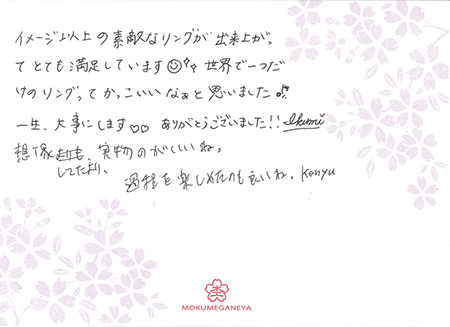 イメージ以上の素敵なリングが出来上がっ
てとても満足しています 世界で一つだ
けのリングってかっこいいなぁと思いました♪
一生、大事にします♡♡ ありがとうございました!! Ikumi
想像よりも、実物のがいいね。
してたより、
過程を楽しめたのも良いね。Kenyu
MOKUMEGANEYA